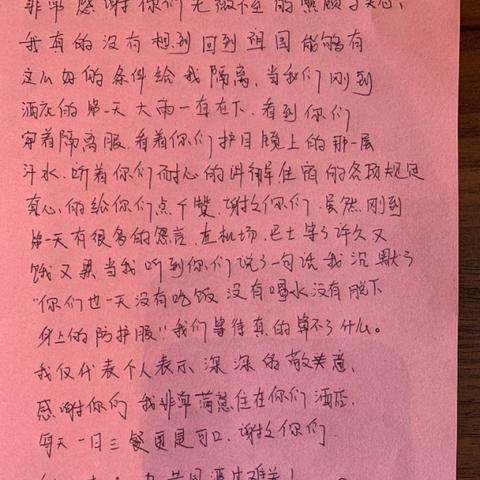 非常感谢你们无微不至的照顾与关怀,
我真的没有想到回到祖国能够有
这么好的条件给我隔离,当我们刚到
酒店的第一天大雨一直在下.看到你们
穿着隔离服.看着你们护目镜上的那一层
汗水.听着你们耐心的讲解住宿的各项规定
真心的给你们点个赞.谢谢你们.虽然刚到
第一天有很多的怨言,在机场.巴士等了许久又
饿又累当我听到你们说了一句话我沉默了
"你们也一天没有吃饭没有喝水没有脱下
身上的防护服"我们等待真的算不了什么。
我仅代表个人表示深深的敬意,
感谢你们 我非常满意住在你们酒店.
每天一日三餐更是可口.谢谢你们.
共同渡过难关!